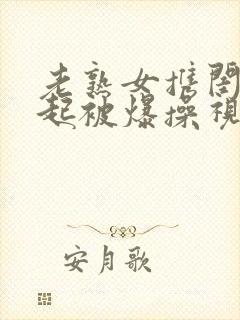 老熟女携閤
起被爆操視
安月歌